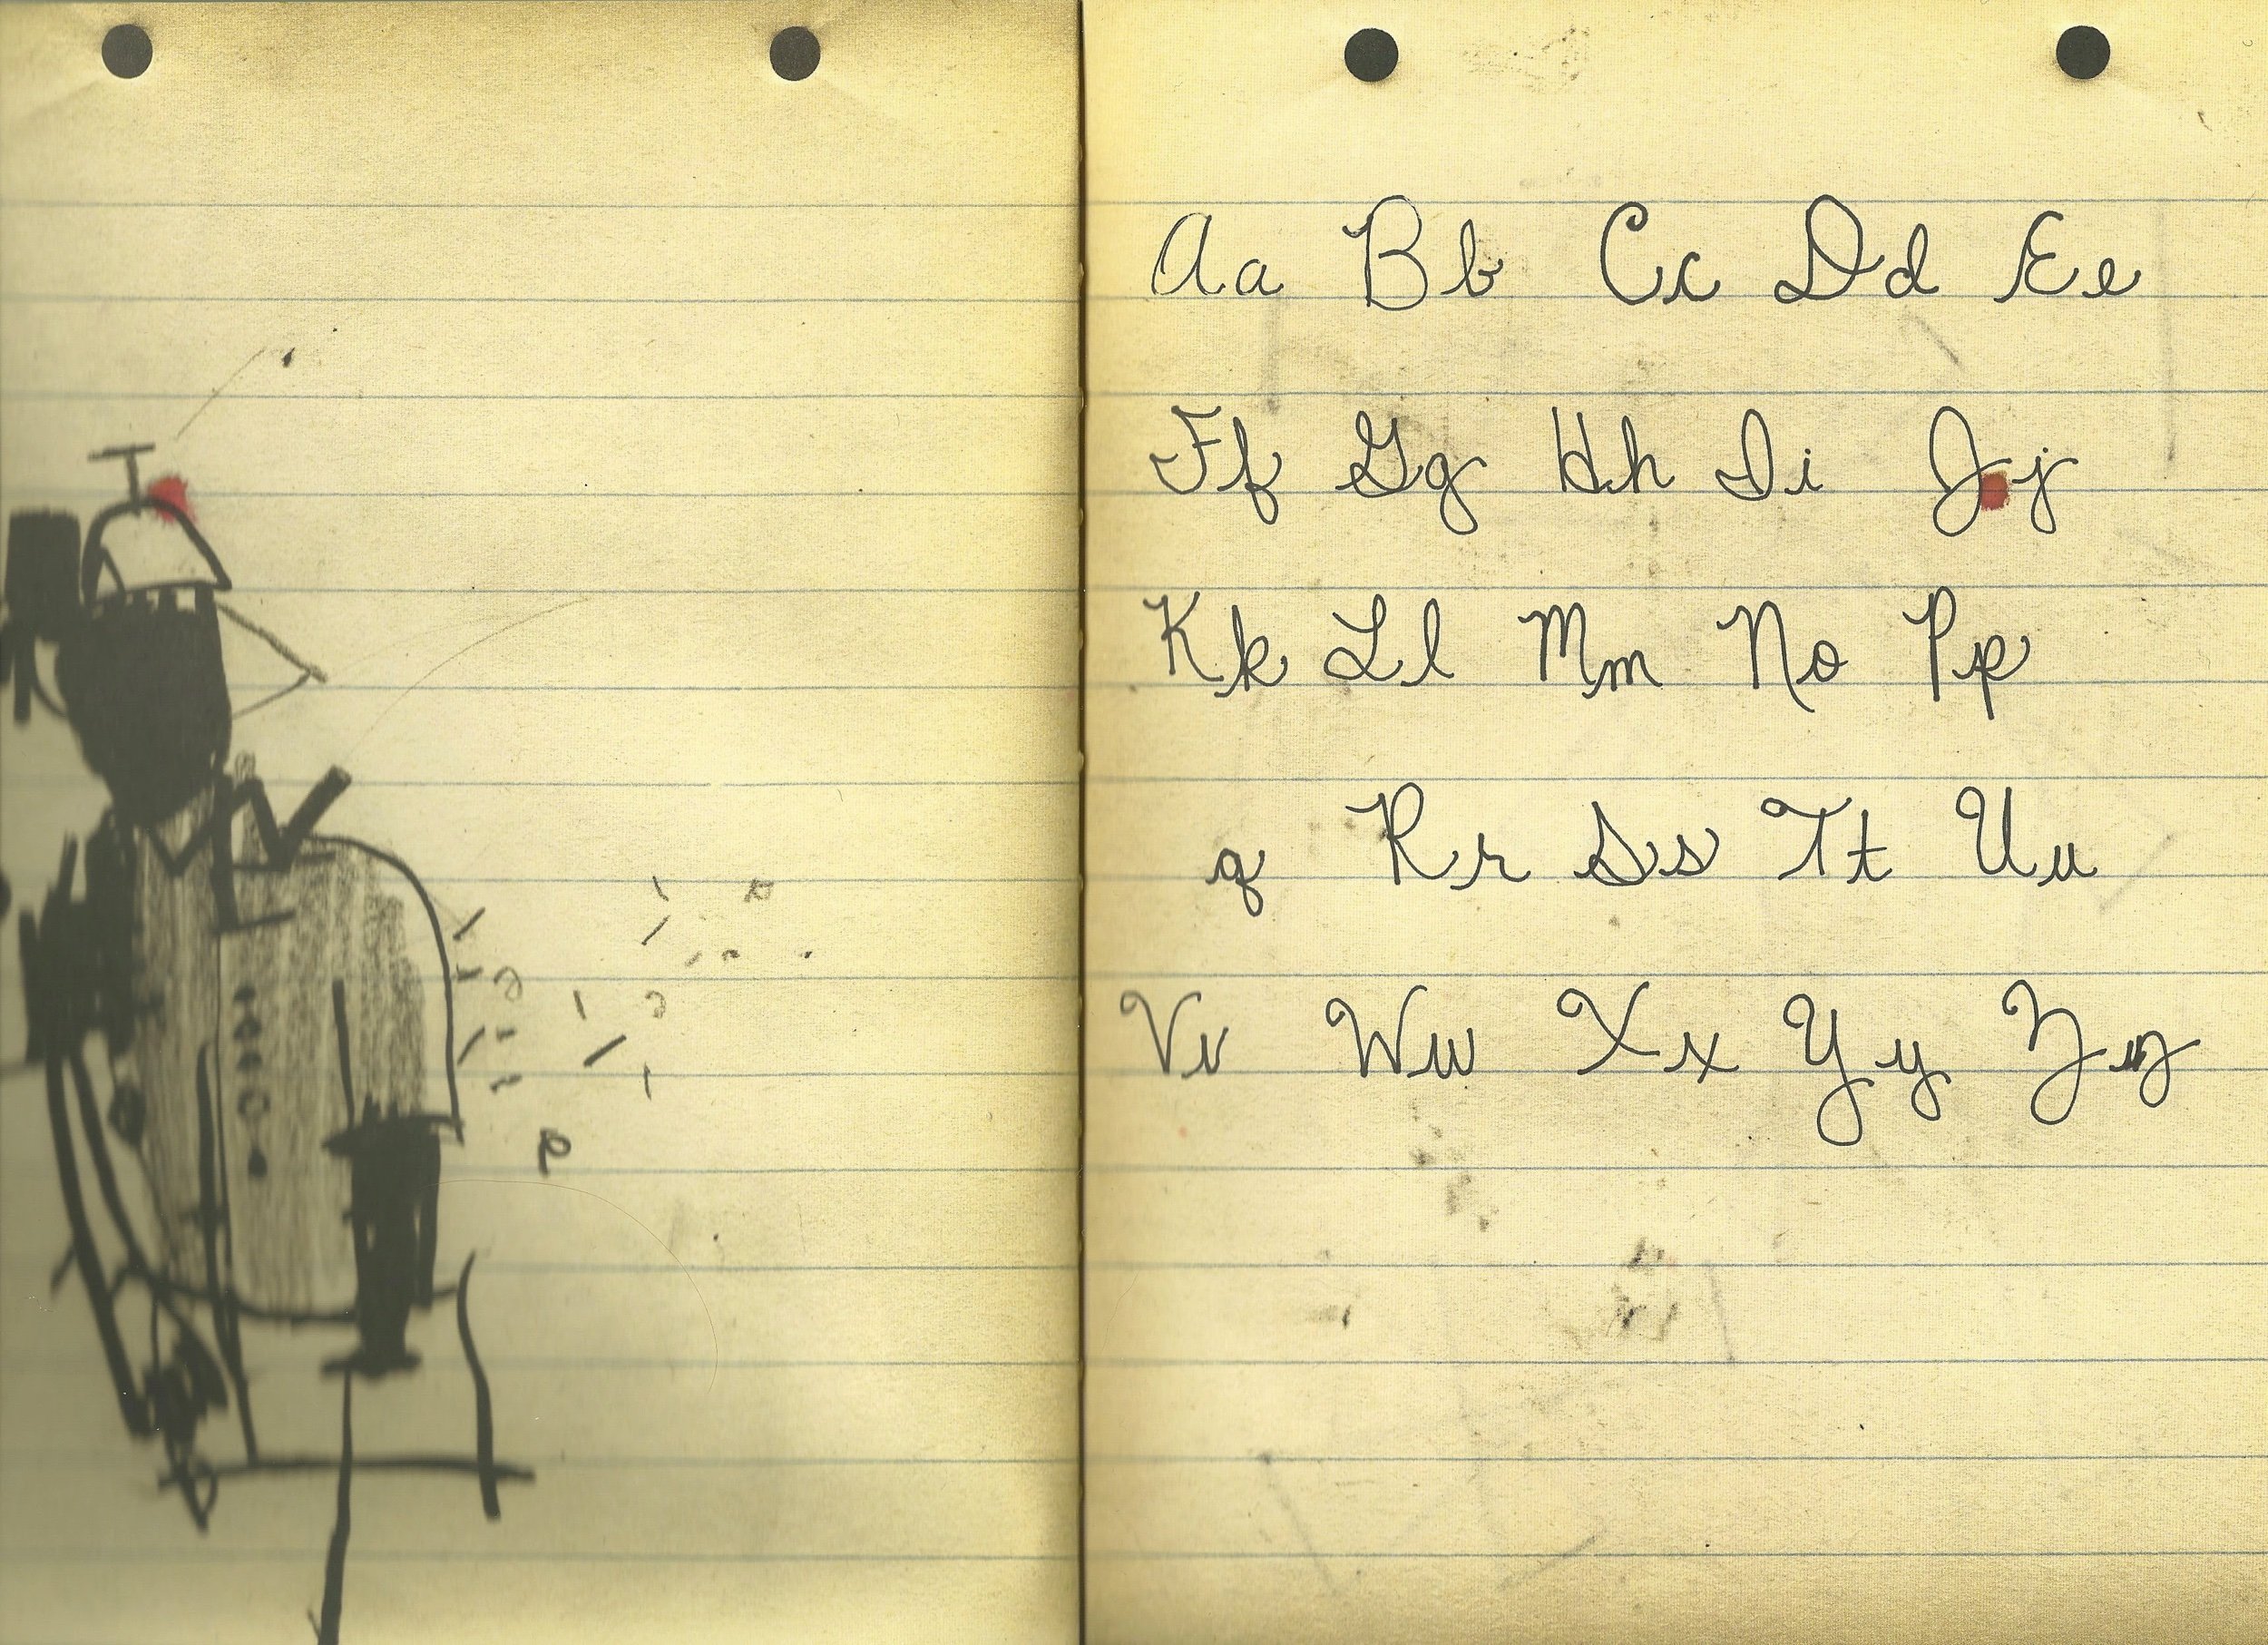 Aa Bb Cc Dd Ee
Ff Gg Hh Ii Jj
Kk Ll Mm No Pp
q Rr Ss Tt Uu
Vv Ww Xx Yy Zz